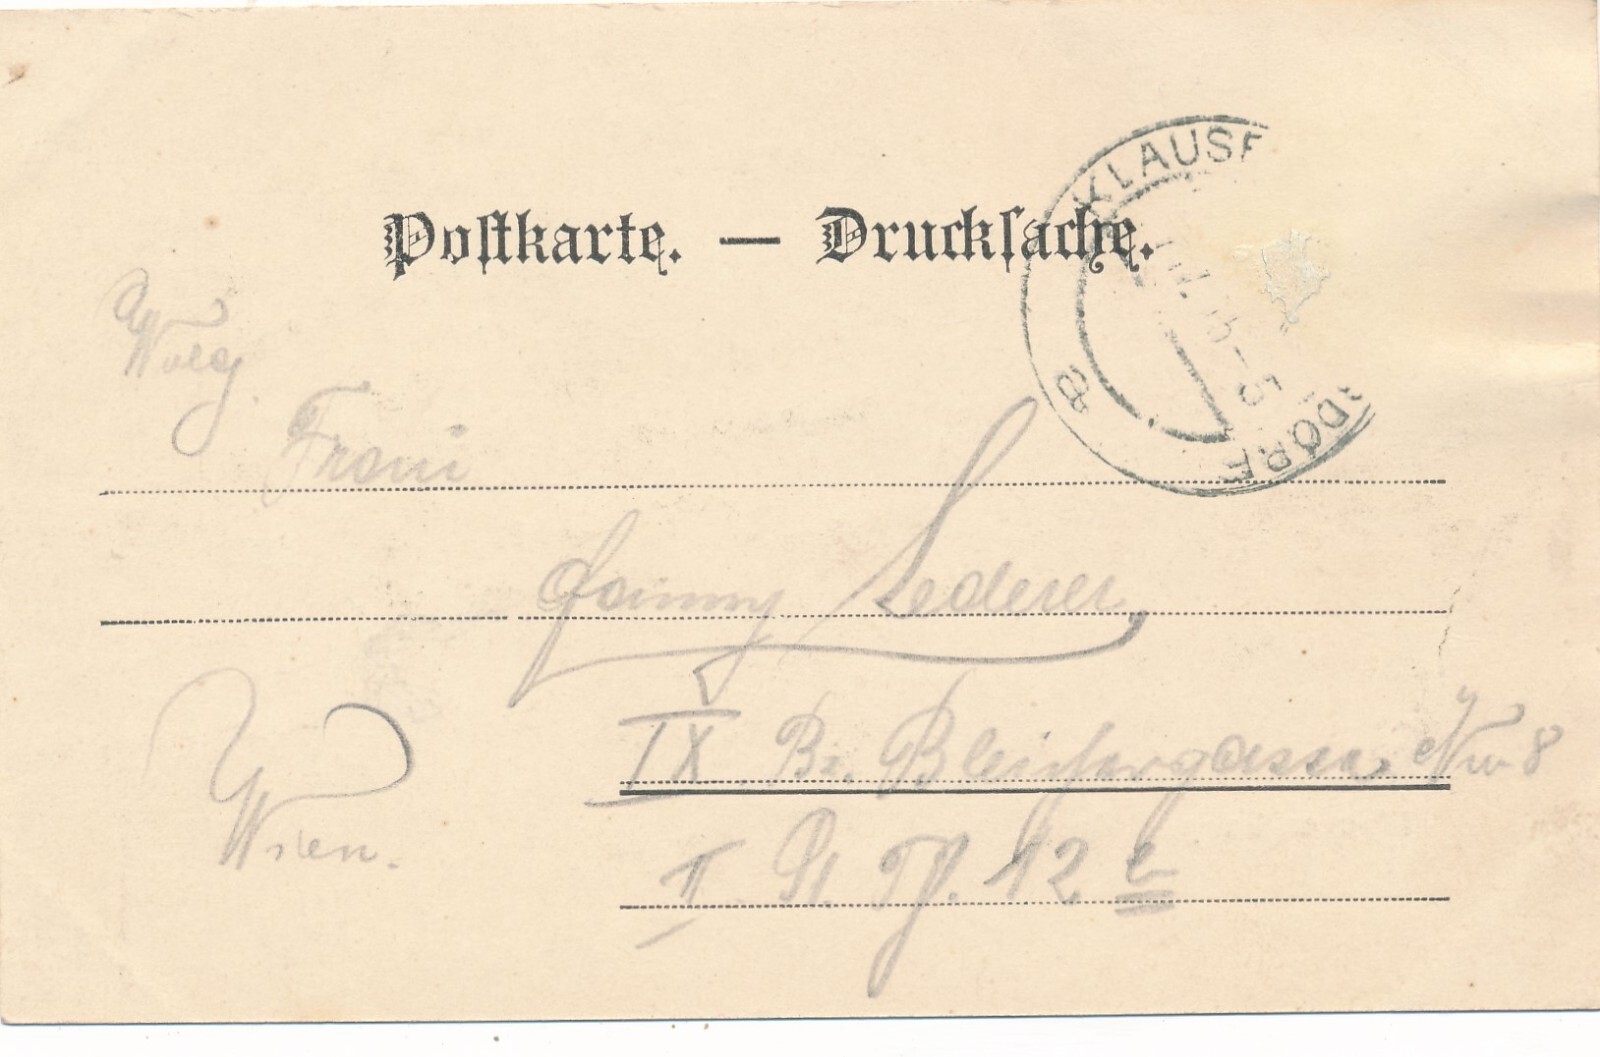 Postkarte. — Drucksache.
KLAUS
DORF
Wolg
Frau
Fanny Lederer
IX Bz. Bleichergasse Nr 8
Wien.
II. St. Th. 12